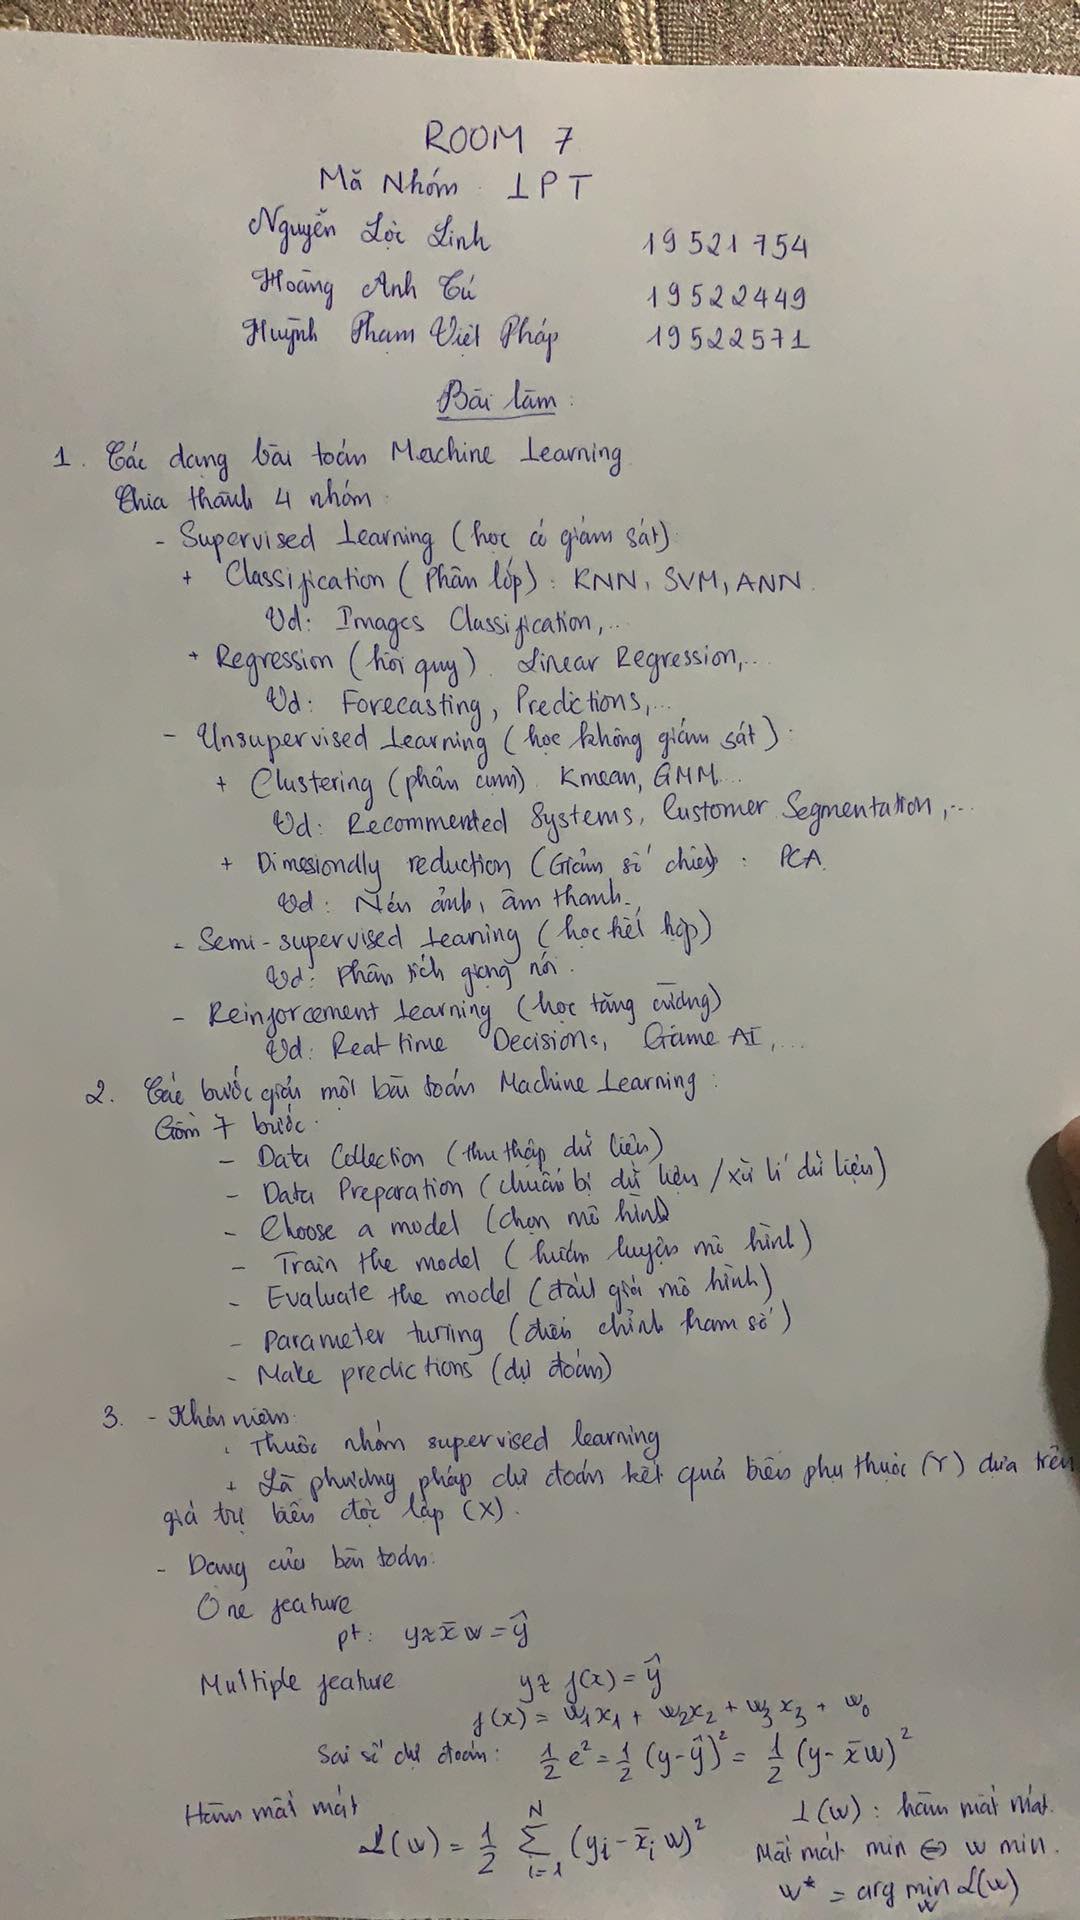 ROOM 7
Mã Nhóm : LPT
Nguyễn Lộc Linh 19521754
Hoàng Anh Tú 19522449
Huỳnh Phạm Việt Pháp 19522571
Bài làm :
1. Các dạng bài toán Machine Learning
Chia thành 4 nhóm :
- Supervised Learning (học có giám sát)
+ Classification (Phân lớp) : KNN, SVM, ANN.
Vd: Images Classification,...
+ Regression (hồi quy) : Linear Regression,...
Vd: Forecasting, Predictions,...
- Unsupervised Learning (học không giám sát) :
+ Clustering (phân cụm) : Kmean, GMM...
Vd: Recommented Systems, Customer Segmentation,...
+ Dimesiondly reduction (Giảm số chiều) : PCA.
Vd: Nén ảnh, âm thanh..,
- Semi-supervised Learning (học kết hợp)
Vd: Phân tích giọng nói.
- Reinforcement Learning (học tăng cường)
Vd: Real time Decisions, Game AI,...
2. Các bước giải một bài toán Machine Learning :
Gồm 7 bước :
- Data Collection (thu thập dữ liệu)
- Data Preparation (chuẩn bị dữ liệu / xử lí dữ liệu)
- Choose a model (chọn mô hình)
- Train the model (huấn luyện mô hình)
- Evaluate the model (đánh giá mô hình)
- Parameter turing (điều chỉnh tham số)
- Make predictions (dự đoán)
3. - Khái niệm:
+ Thuộc nhóm supervised learning
+ Là phương pháp dự đoán kết quả biến phụ thuộc (Y) dựa trên
giá trị biến độc lập (X).
- Dạng của bài toán:
One feature
pt: y≈x̄w = ŷ
Multiple feature y≈ f(x) = ŷ
f(x) = w₁x₁ + w₂x₂ + w₃x₃ + w₀
Sai số dự đoán: 1/2 e² = 1/2 (y-ŷ)² = 1/2 (y-x̄w)²
Hàm mất mát L(w) : hàm mất mát.
L(w) = 1/2 Σ_{i=1}^{N} (yᵢ - x̄ᵢ w)² Mất mát min ⇔ w min.
w* = arg min_w L(w)